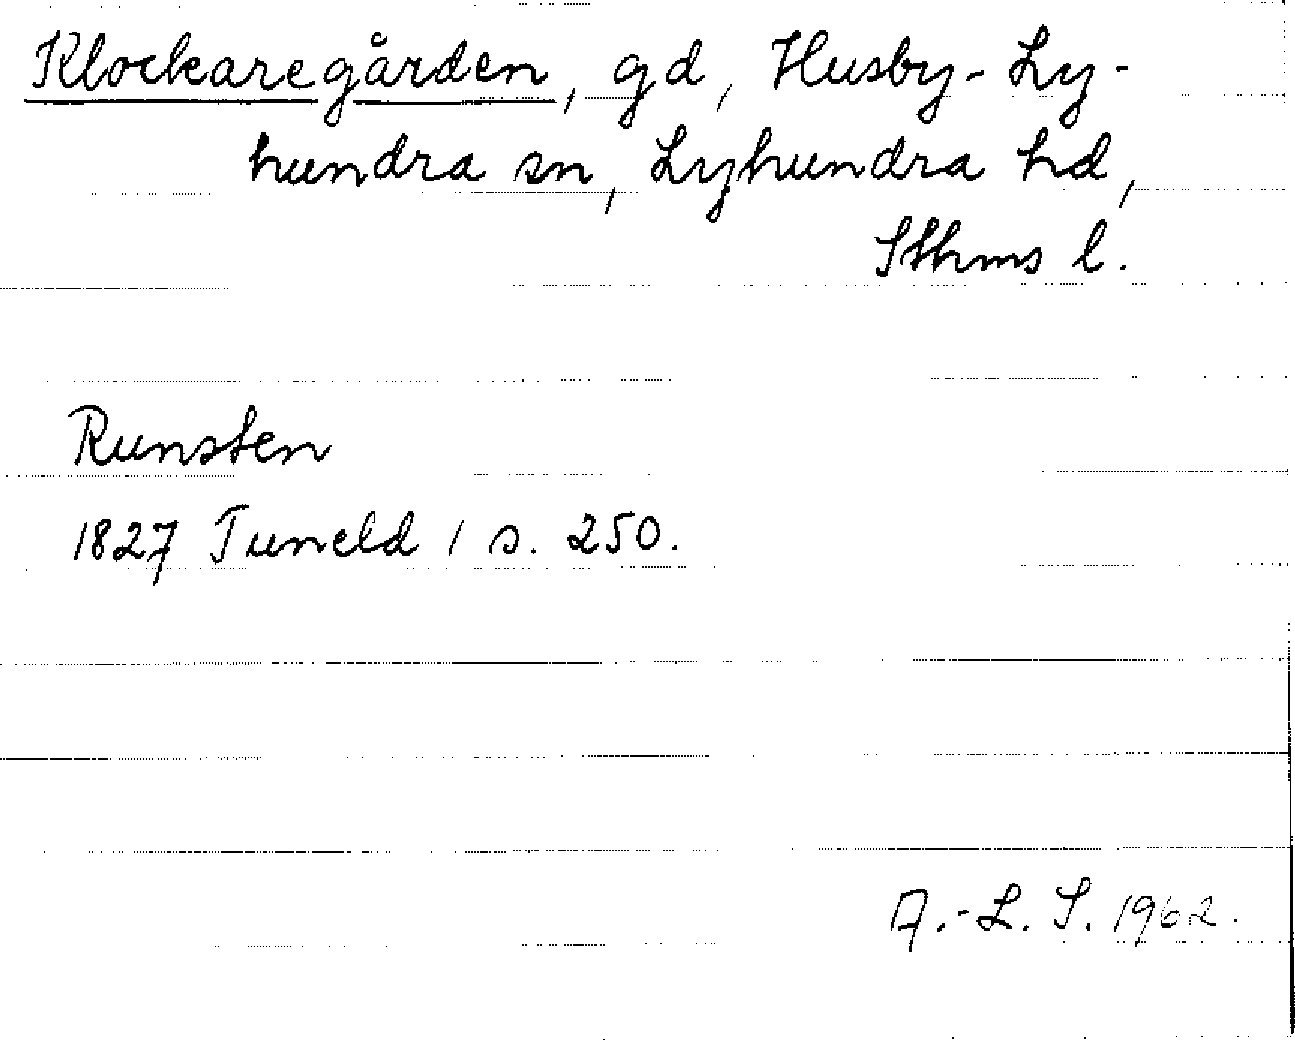 Klockaregården, gd, Husby-Ly-
hundra sn, Lyhundra hd,
Sthms l.
Runsten
1827 Tuneld 1 s. 250.
A.-L. S. 1962.